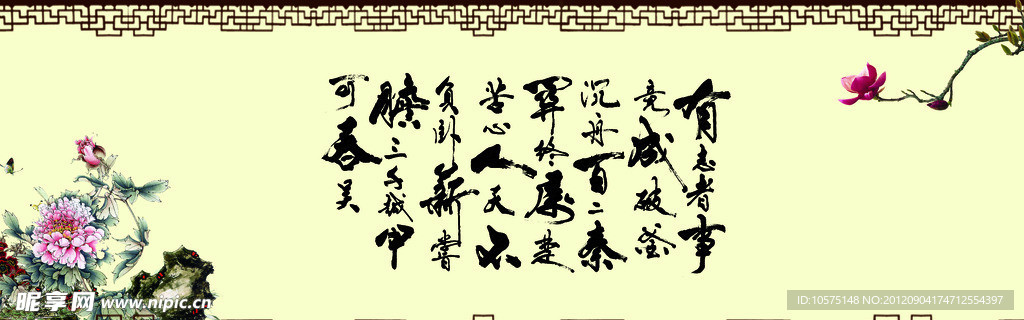 有志者事
竟成破釜
沉舟百二秦
關終属楚
苦心人天不
負卧薪嘗
膽三千越甲
可吞吴
昵享网 www.nipic.cn
ID:10575148 NO:20120904174712554397